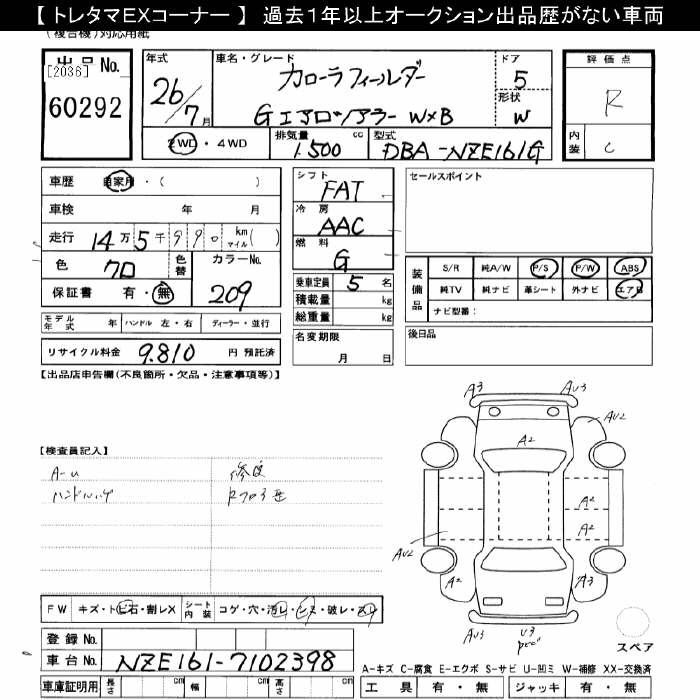 【 トレタマEXコーナー 】 過去1年以上オークション出品歴がない車両
(複合機)対応用紙
出品 No.
[2036]
60292
年式
26/7月
車名・グレード
カローラフィールダー
Gエアロツアラー W×B
ドア
5
形状
W
評価点
R
内装
C
2WD・4WD
排気量
1.500 cc
型式
DBA-NZE161G
車歴 自家用・( )
車検 年 月
走行 14万5千990 km マイル( )
色 クロ
色替
カラーNo.
209
保証書 有・無
モデル年式 年
ハンドル 左・右
ディーラー・並行
リサイクル料金 9.810 円 預託済
シフト
FAT
冷房
AAC
燃料
G
乗車定員 5 名
積載量 kg
総重量 kg
名変期限
月 日
セールスポイント
装備品
S/R 純A/W P/S P/W ABS
純TV 純ナビ 革シート 外ナビ エアB
ナビ型番:
後日品
【出品店申告欄(不良箇所・欠品・注意事項等)】
【検査員記入】
A-u
修復
A3
AU3
AU2
A2
A2
A2
AU2
A2
A3
AU3
U3
FW キズ・トビ石・割レX
シート内装 コゲ・穴・汚レ・シミ・破レ・スレ
登録 No.
車台 No. NZE161-7102398
車庫証明用 長さ cm 幅 cm 高さ cm
スペア
A-キズ C-腐食 E-エクボ S-サビ U-凹ミ W-補修 XX-交換済
工具 有・無 ジャッキ 有・無